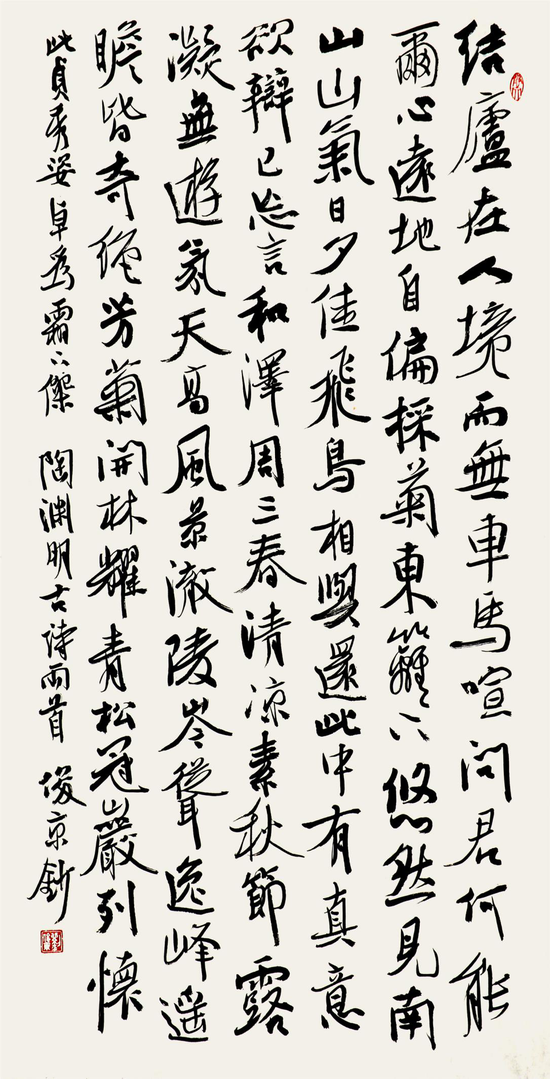 結廬在人境而無車馬喧問君何能
爾心遠地自偏採菊東籬下悠然見南
山山氣日夕佳飛鳥相與還此中有真意
欲辯已忘言和澤周三春清涼素秋節露
凝無遊氛天高風景澈陵岑聳逸峰遥
瞻皆奇絕芳菊開林耀青松冠巖列懷
此貞秀姿卓爲霜下傑 陶淵明古詩两首 俊京鈔